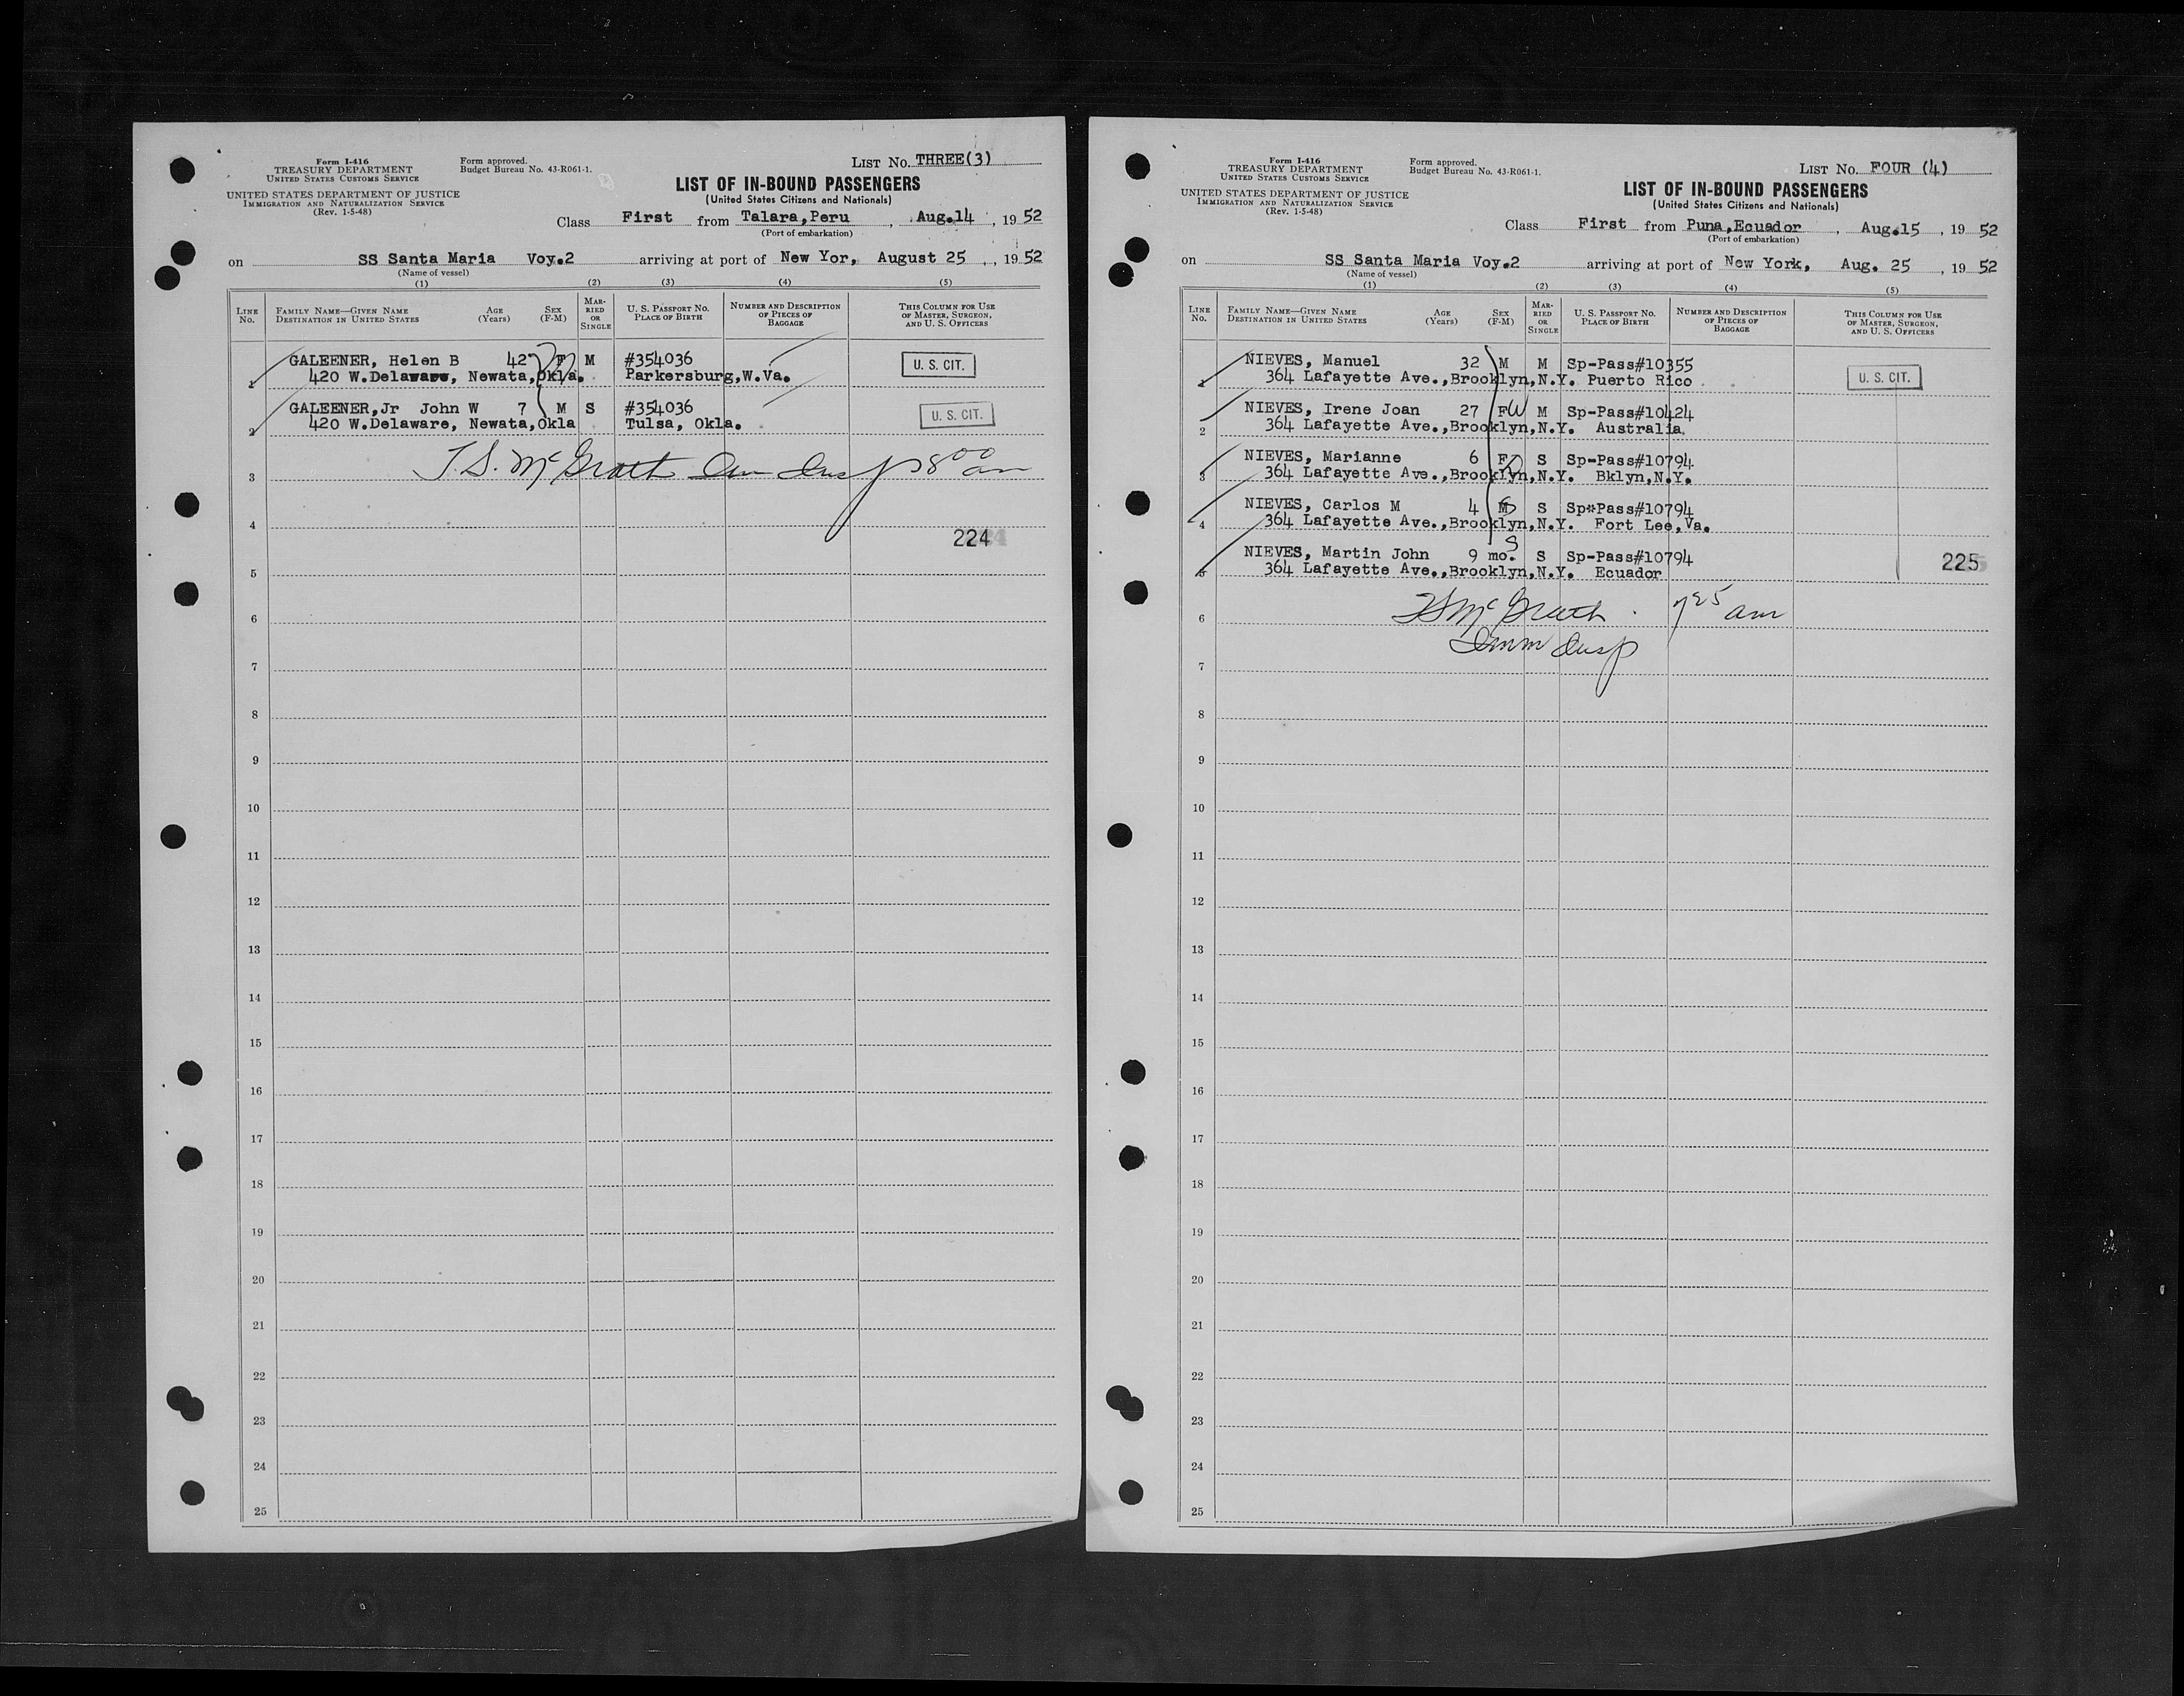 Form I-416
TREASURY DEPARTMENT
UNITED STATES CUSTOMS SERVICE
UNITED STATES DEPARTMENT OF JUSTICE
IMMIGRATION AND NATURALIZATION SERVICE
(Rev. 1-5-48)
Form approved.
Budget Bureau No. 43-R061-1.
LIST NO. THREE(3)
LIST OF IN-BOUND PASSENGERS
(United States Citizens and Nationals)
Class First from Talara,Peru, Aug.14, 1952
(Port of embarkation)
on SS Santa Maria Voy.2 arriving at port of New Yor, August 25, 1952
(Name of vessel)
(1) (2) (3) (4) (5)
LINE No. FAMILY NAME—GIVEN NAME DESTINATION IN UNITED STATES AGE (Years) SEX (F-M) MARRIED OR SINGLE U. S. PASSPORT NO. PLACE OF BIRTH NUMBER AND DESCRIPTION OF PIECES OF BAGGAGE THIS COLUMN FOR USE OF MASTER, SURGEON, AND U. S. OFFICERS
GALEENER, Helen B 42 F M #354036 U. S. CIT.
1 420 W.Delaware, Newata,Okla. Parkersburg,W.Va.
GALEENER,Jr John W 7 M S #354036 U. S. CIT.
2 420 W.Delaware, Newata,Okla Tulsa, Okla.
3 T.S. McGrath Imm Insp 8 00 am
4
224
5
6
7
8
9
10
11
12
13
14
15
16
17
18
19
20
21
22
23
24
25
Form I-416
TREASURY DEPARTMENT
UNITED STATES CUSTOMS SERVICE
UNITED STATES DEPARTMENT OF JUSTICE
IMMIGRATION AND NATURALIZATION SERVICE
(Rev. 1-5-48)
Form approved.
Budget Bureau No. 43-R061-1.
LIST NO. FOUR (4)
LIST OF IN-BOUND PASSENGERS
(United States Citizens and Nationals)
Class First from Puna,Ecuador, Aug.15, 1952
(Port of embarkation)
on SS Santa Maria Voy.2 arriving at port of New York, Aug. 25, 1952
(Name of vessel)
(1) (2) (3) (4) (5)
LINE No. FAMILY NAME—GIVEN NAME DESTINATION IN UNITED STATES AGE (Years) SEX (F-M) MARRIED OR SINGLE U. S. PASSPORT NO. PLACE OF BIRTH NUMBER AND DESCRIPTION OF PIECES OF BAGGAGE THIS COLUMN FOR USE OF MASTER, SURGEON, AND U. S. OFFICERS
NIEVES, Manuel 32 M M Sp-Pass#10355
1 364 Lafayette Ave.,Brooklyn,N.Y. Puerto Rico U. S. CIT.
NIEVES, Irene Joan 27 F W M Sp-Pass#10424
2 364 Lafayette Ave.,Brooklyn,N.Y. Australia
NIEVES, Marianne 6 F S Sp-Pass#10794
3 364 Lafayette Ave.,Brooklyn,N.Y. Bklyn,N.Y.
NIEVES, Carlos M 4 M S Sp*Pass#10794
4 364 Lafayette Ave.,Brooklyn,N.Y. Fort Lee,Va.
NIEVES, Martin John 9 mo. S Sp-Pass#10794
5 364 Lafayette Ave.,Brooklyn,N.Y. Ecuador 225
6 TS McGrath 7 25 am
Imm Insp
7
8
9
10
11
12
13
14
15
16
17
18
19
20
21
22
23
24
25